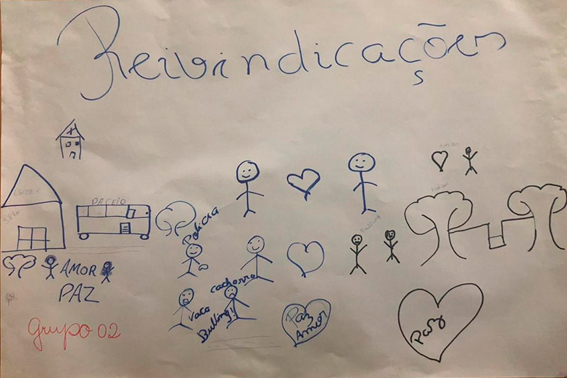 Reivindicações
s
PRESÍO
Policia
AMOR
PAZ
cachorro
vaca
Bulling!
Paz
Amor
Paz
Grupo 02